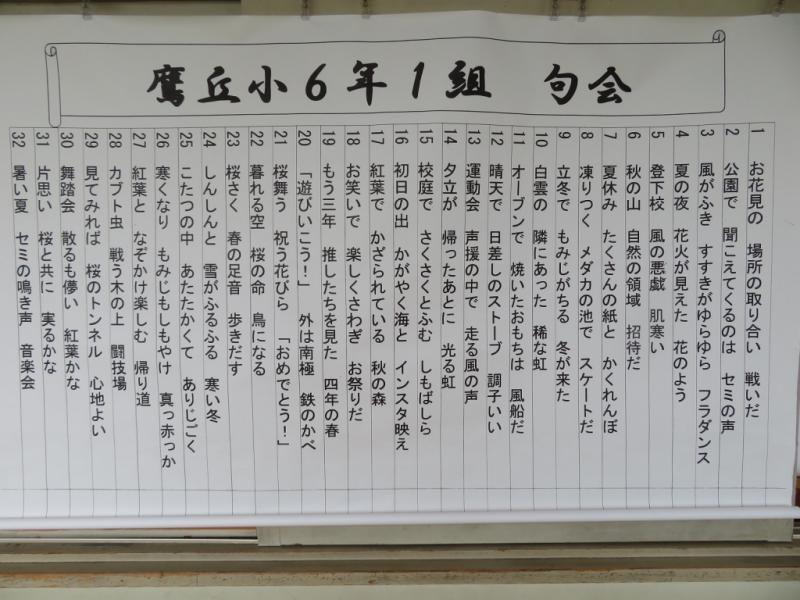 鷹丘小6年1組　句会
1　お花見の　場所の取り合い　戦いだ
2　公園で　聞こえてくるのは　セミの声
3　風がふき　すすきがゆらゆら　フラダンス
4　夏の夜　花火が見えた　花のよう
5　登下校　風の悪戯　肌寒い
6　秋の山　自然の領域　招待だ
7　夏休み　たくさんの紙と　かくれんぼ
8　凍りつく　メダカの池で　スケートだ
9　立冬で　もみじがちる　冬が来た
10　白雲の　隣にあった　稀な虹
11　オーブンで　焼いたおもちは　風船だ
12　晴天で　日差しのストーブ　調子いい
13　運動会　声援の中で　走る風の声
14　夕立が　帰ったあとに　光る虹
15　校庭で　さくさくとふむ　しもばしら
16　初日の出　かがやく海と　インスタ映え
17　紅葉で　かざられている　秋の森
18　お笑いで　楽しくさわぎ　お祭りだ
19　もう三年　推したちを見た　四年の春
20　「遊びいこう！」　外は南極　鉄のかべ
21　桜舞う　祝う花びら　「おめでとう！」
22　暮れる空　桜の命　鳥になる
23　桜さく　春の足音　歩きだす
24　しんしんと　雪がふるふる　寒い冬
25　こたつの中　あたたかくて　ありじごく
26　寒くなり　もみじもしもやけ　真っ赤っか
27　紅葉と　なぞかけ楽しむ　帰り道
28　カブト虫　戦う木の上　闘技場
29　見てみれば　桜のトンネル　心地よい
30　舞踏会　散るも儚い　紅葉かな
31　片思い　桜と共に　実るかな
32　暑い夏　セミの鳴き声　音楽会